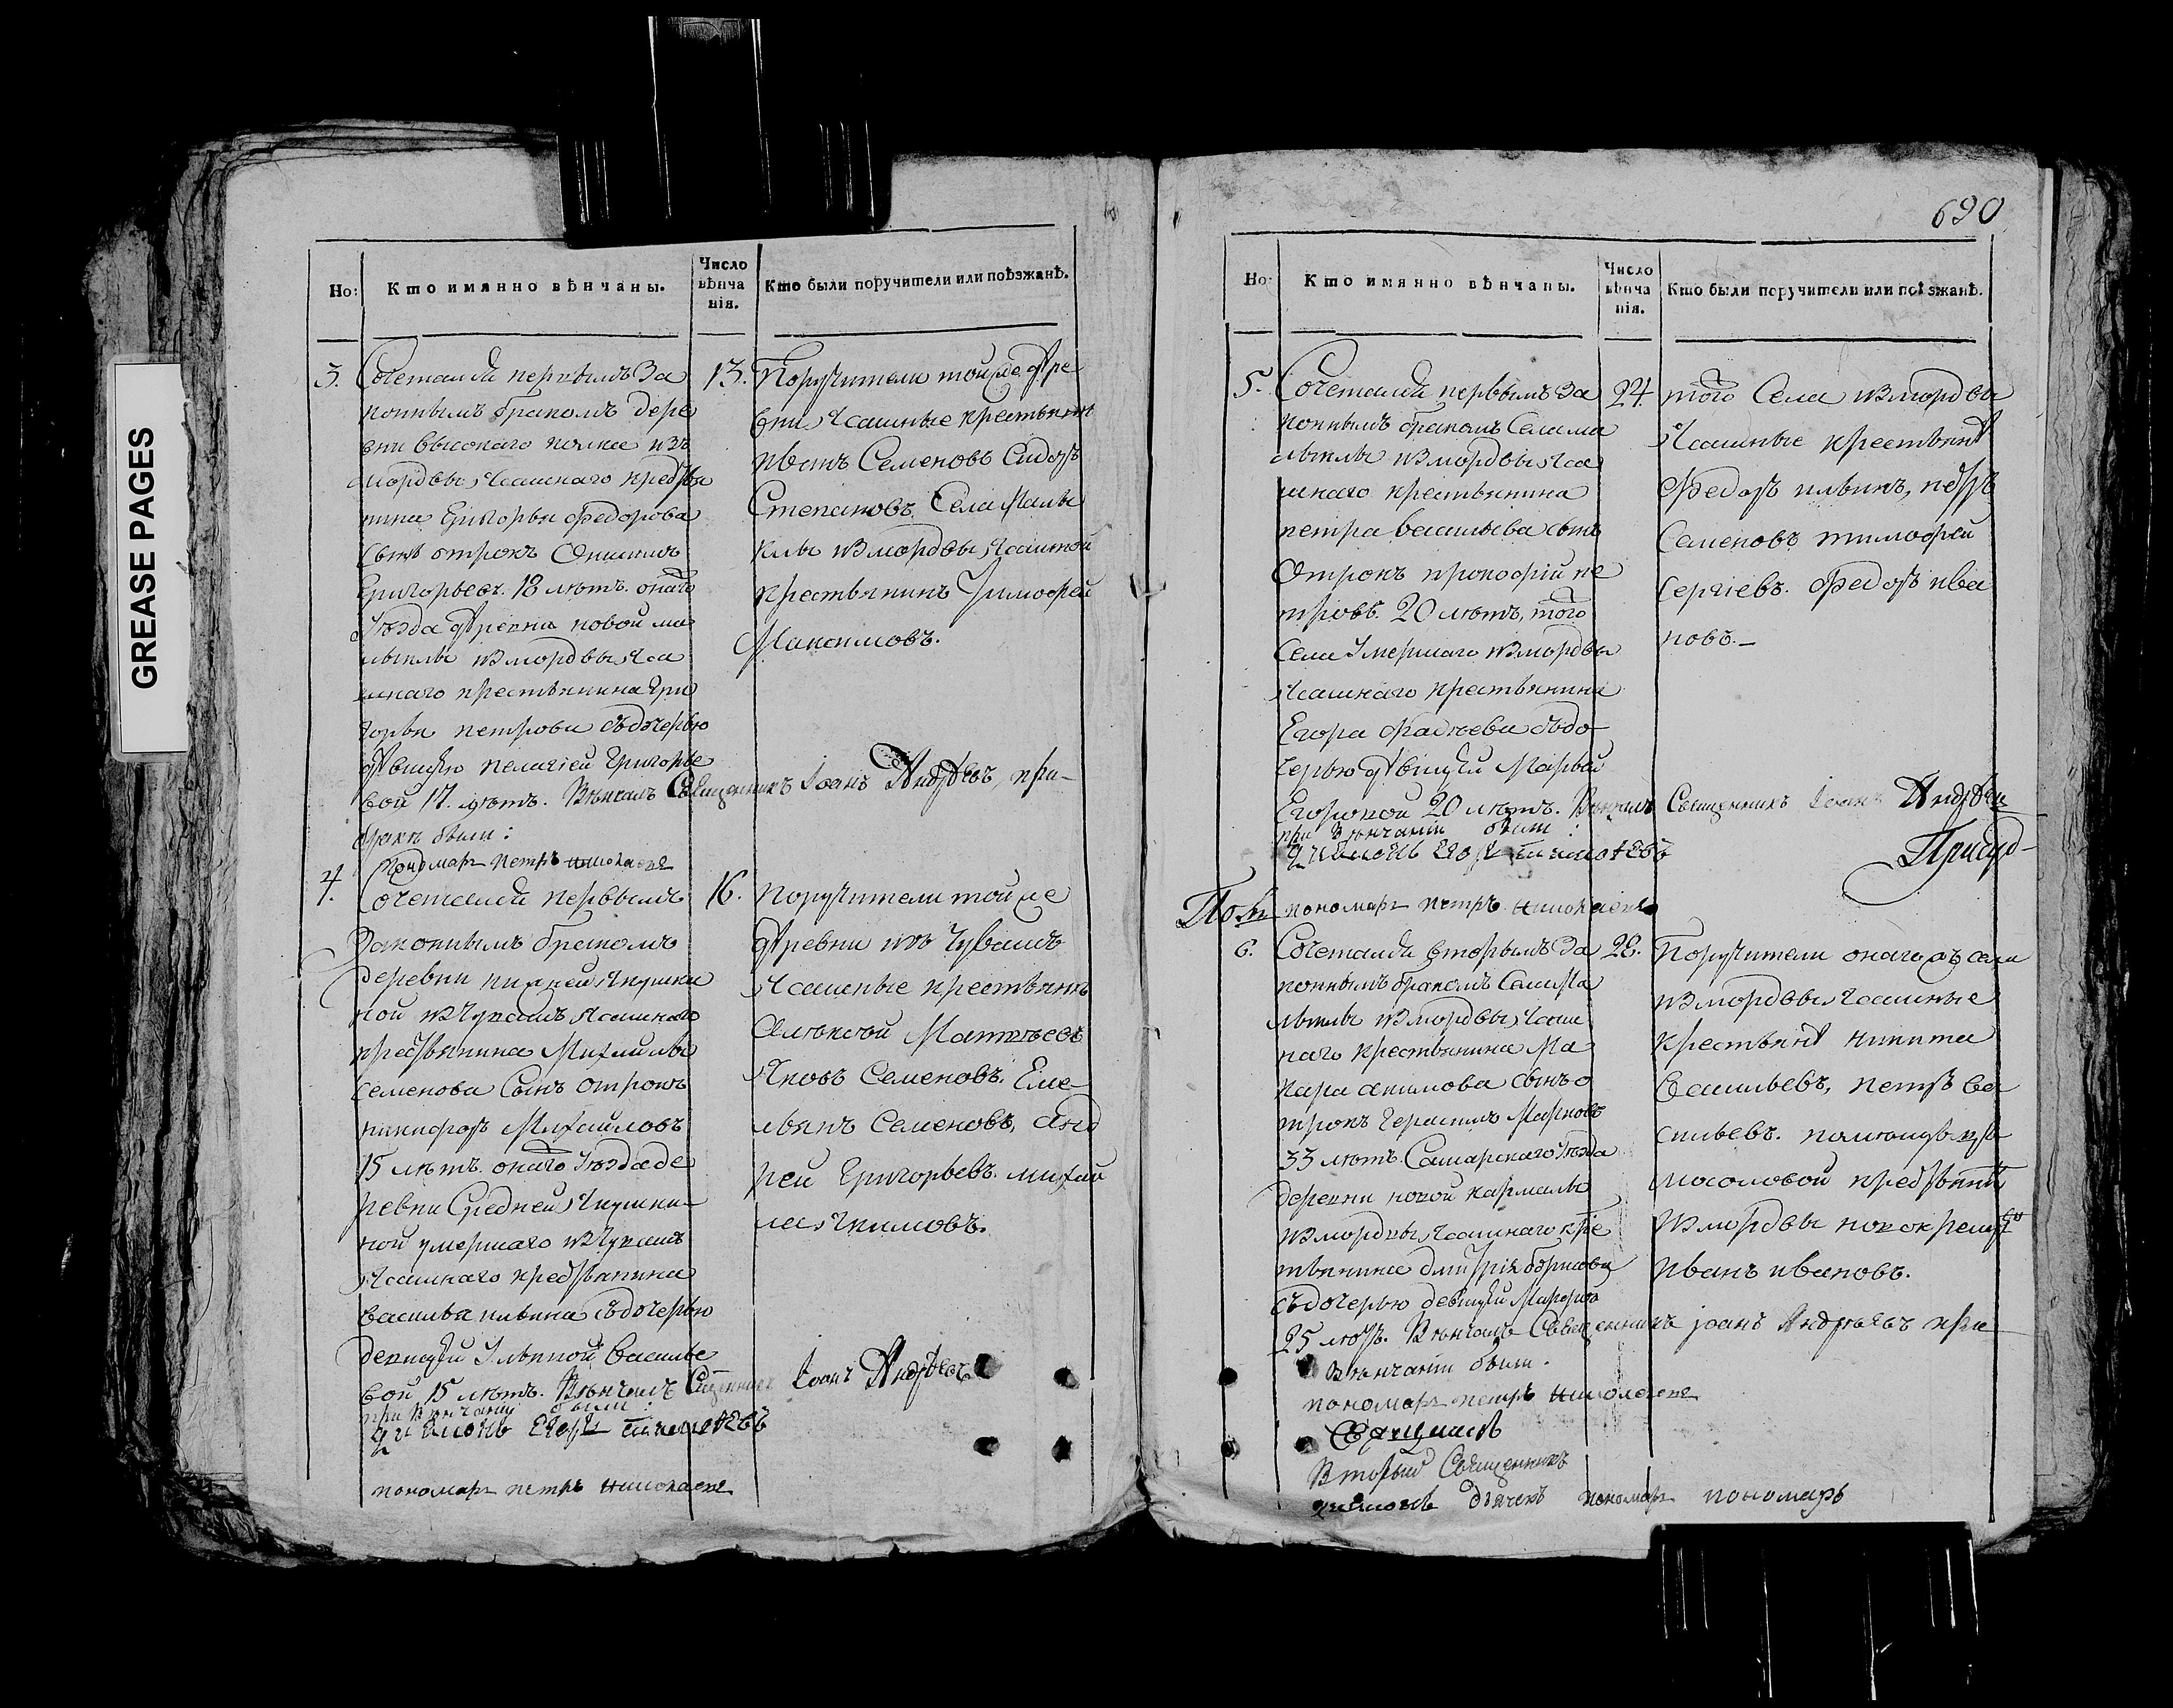 GREASE PAGES
690
Но:
Кто имянно вѣнчаны.
Число вѣнча нія.
Кто были поручители или поѣзжанѣ.
3.
Сочетались первымъ За
коннымъ бракомъ дере
вни высокаго колка изъ
мордвы Ясашнаго крестья
нина Григорья Федорова
сынъ отрокъ
Григорьевъ. 18 лѣтъ. онаго
уѣзда деревни новой ма
лыклы изъ мордвы Яса
шнаго крестьянина Гри
горья петрова съ дочерью
девицею пелагіей Григорье
вой 17. лѣтъ. Вѣнчалъ Священникъ Іоанъ Андрѣевъ, при
бракѣ были:
Пономарь петръ николаевъ
13.
Поручители той же дере
вни Ясашные крестьяне
иванъ Семеновъ Сидоръ
Степановъ. Села Малы
клы изъ мордвы Ясашной
крестьянинъ Тимофей
Максимовъ.
4.
Сочетались первымъ
Законнымъ бракомъ
деревни нижней Якушки
ной изъ Чувашъ Ясашнаго
крестьянина Михаилы
Семенова Сынъ отрокъ
никифоръ Михайловъ
15 лѣтъ. онаго уѣзда де
ревни Средней Якушки
ной умершаго изъ Чувашъ
Ясашнаго крестьянина
Василья ильина съ дочерью
девицей Ульяной Василье
вой 15 лѣтъ. Вѣнчалъ Сщенникъ Іоанъ Андрѣевъ
при вѣнчаніи были:
пономарь петръ николаевъ
16.
Поручители той же
деревни изъ Чувашъ
Ясашные крестьянѣ
Алѣксѣй Матвѣевъ
Яковъ Семеновъ. Еме
льянъ Семеновъ, Анд
рей Григорьевъ. михай
ла Якимовъ.
Но:
Кто имянно вѣнчаны.
Число вѣнча нія.
Кто были поручители или поѣзжанѣ.
5.
Сочетались первымъ За
коннымъ бракомъ Села ма
лыклы изъ мордвы Яса
шнаго крестьянина
петра васильева сынъ
Отрокъ прокофій пе
тровъ. 20 лѣтъ, того
Села умершаго изъ мордвы
Ясашнаго крестьянина
Егора Фадѣева съ до
черью девицей Марьей
Егоровой 20 лѣтъ. Вѣнчалъ Священникъ Іоанъ Андрѣевъ
при вѣнчаніи были:
пономарь петръ николаевъ
24.
того Села изъ мордвы
Ясашные крестьянѣ
Федоръ ильинъ, петръ
Семеновъ тимофей
Сергіевъ. Федоръ ива
новъ.
6.
Сочетались вторымъ За
коннымъ бракомъ Села Ма
лыклы изъ мордвы Ясаш
наго крестьянина Ма
кара акимова сынъ о
трокъ Герасимъ Макаровъ
33 лѣтъ. Самарскаго уѣзда
деревни новой кармалы
изъ мордвы Ясашнаго кре
стьянина дмитрія борисова
съ дочерью девицей
25 лѣтъ. Вѣнчалъ Священникъ іоанъ Андрѣевъ при
вѣнчаніи были.
пономарь петръ николаевъ
Священникъ
Вторый Священникъ
дьячекъ пономарь пономарь
28.
Поручители онаго жъ села
изъ мордвы Ясашные
крестьянѣ никита
Васильевъ, петръ ва
сильевъ.
изъ мордвы
иванъ ивановъ.